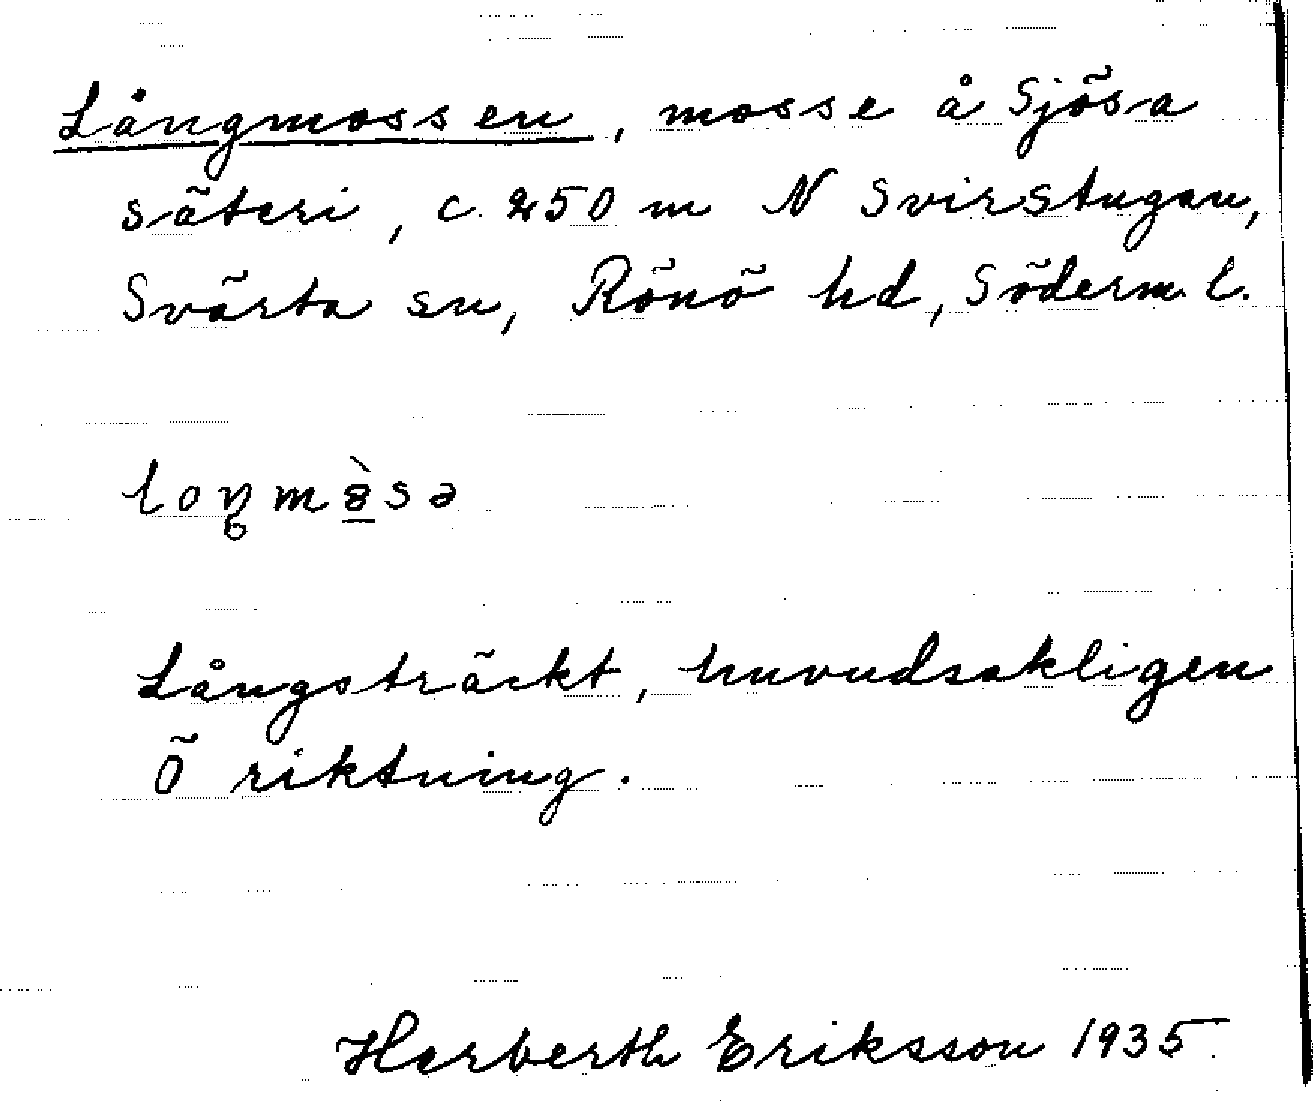 Långmossen, mosse å Sjösa
säteri, c. 250 m N Svirstugan,
Svärta sn, Rönö hd, Söderm. l.
Långsträckt, huvudsakligen
Ö riktning.
Herberth Eriksson 1935.